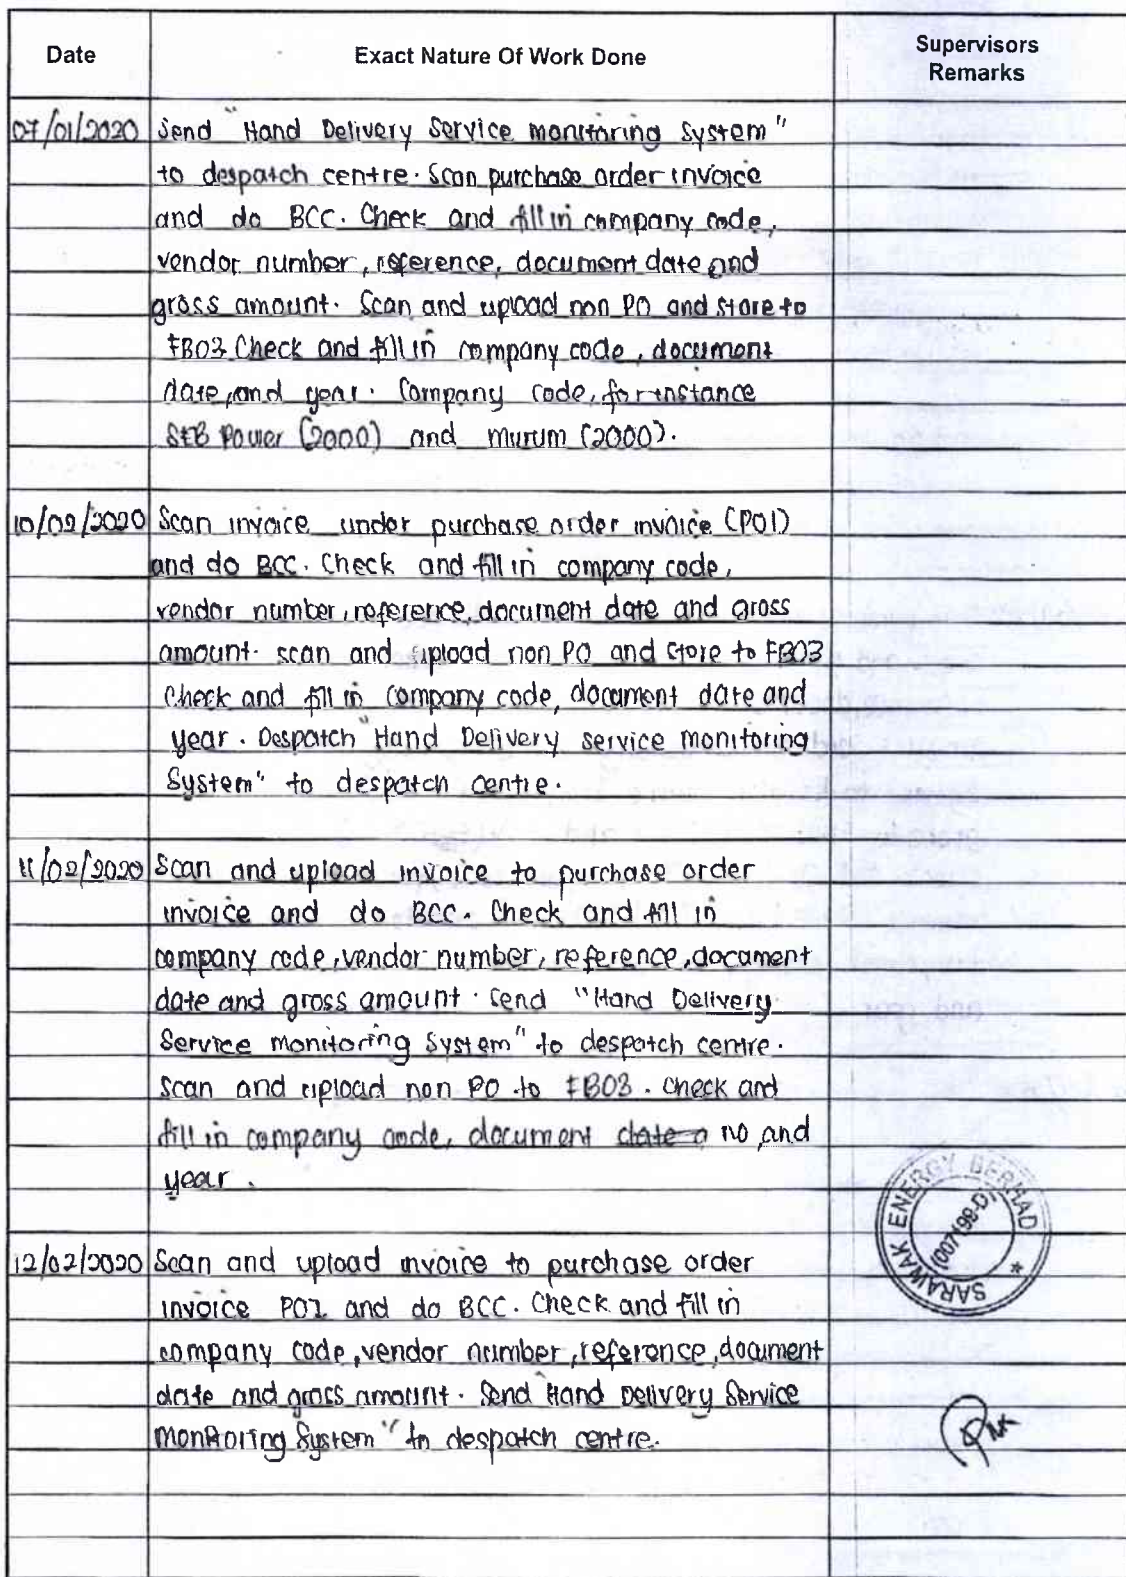 Date Exact Nature Of Work Done Supervisors
Remarks
07/01/2020 Send "Hand Delivery Service monitoring System"
to despatch centre. Scan purchase order invoice
and do BCC. Check and fill in company code,
vendor number, reference, document date and
gross amount. Scan and upload non PO and store to
FB03 Check and fill in company code, document
date, and year. Company code, for instance
SEB Power (2000) and Murum (2000).
10/02/2020 Scan invoice under purchase order invoice (POI)
and do BCC. Check and fill in company code,
vendor number, reference, document date and gross
amount. scan and upload non PO and store to FB03
Check and fill in company code, document date and
year. Despatch "Hand Delivery service monitoring
System" to despatch centre.
11/02/2020 Scan and upload invoice to purchase order
invoice and do BCC. Check and fill in
company code, vendor number, reference, document
date and gross amount. Send "Hand Delivery
Service monitoring System" to despatch centre.
scan and upload non PO to FB03. Check and
fill in company code, document date a no, and
year.
12/02/2020 Scan and upload invoice to purchase order
invoice POI and do BCC. Check and fill in
company code, vendor number, reference, document
date and gross amount. Send "Hand Delivery Service
Monitoring System" to despatch centre.
SARAWAK ENERGY BERHAD *
(007199-D)